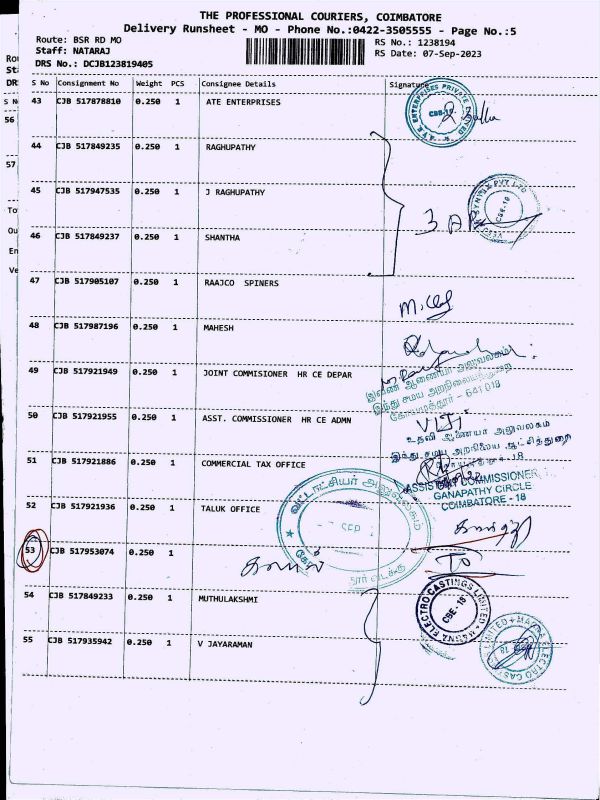 THE PROFESSIONAL COURIERS, COIMBATORE
Delivery Runsheet - MO - Phone No.:0422-3505555 - Page No.:5
Route: BSR RD MO
RS No.: 1238194
Staff: NATARAJ
RS Date: 07-Sep-2023
DRS No.: DCJB123819405
S No Consignment No Weight PCS Consignee Details Signature
43 CJB 517878810 0.250 1 ATE ENTERPRISES
44 CJB 517849235 0.250 1 RAGHUPATHY
45 CJB 517947535 0.250 1 J RAGHUPATHY
46 CJB 517849237 0.250 1 SHANTHA
47 CJB 517905107 0.250 1 RAAJCO SPINERS
48 CJB 517987196 0.250 1 MAHESH
49 CJB 517921949 0.250 1 JOINT COMMISIONER HR CE DEPAR
இணை ஆணையர் அலுவலகம்
இந்து சமய அறநிலையத்துறை
கோயமுத்தூர் - 641 018
50 CJB 517921955 0.250 1 ASST. COMMISSIONER HR CE ADMN
உதவி ஆணையர் அலுவலகம்
இந்து சமய அறநிலைய ஆட்சித்துறை
51 CJB 517921886 0.250 1 COMMERCIAL TAX OFFICE
ASSISTANT COMMISSIONER
GANAPATHY CIRCLE
COIMBATORE - 18
52 CJB 517921936 0.250 1 TALUK OFFICE
வட்டாட்சியர் அலுவலகம்
53 CJB 517953074 0.250 1
TO
54 CJB 517849233 0.250 1 MUTHULAKSHMI
MAGNA ELECTRO CASTINGS LIMITED
CBE-18
55 CJB 517935942 0.250 1 V JAYARAMAN